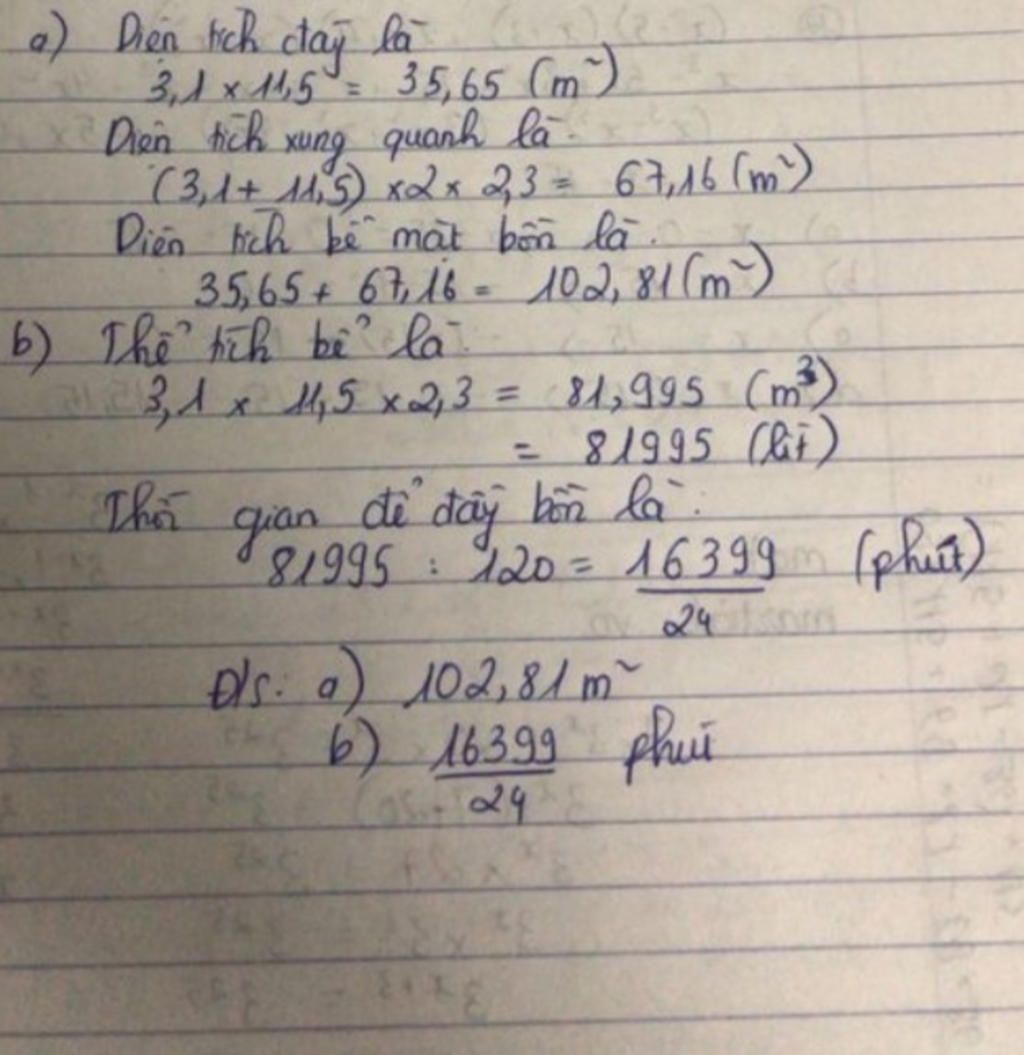 a) Diện tích đáy là
3,1 x 11,5 = 35,65 (m²)
Diện tích xung quanh là:
(3,1 + 11,5) x 2 x 2,3 = 67,16 (m²)
Diện tích bề mặt bồn là:
35,65 + 67,16 = 102,81 (m²)
b) Thể tích bể là:
3,1 x 11,5 x 2,3 = 81,995 (m³)
= 81995 (lít)
Thời gian để đầy bồn là:
81995 : 120 = 16399/24 (phút)
Đ/s: a) 102,81 m²
b) 16399/24 phút